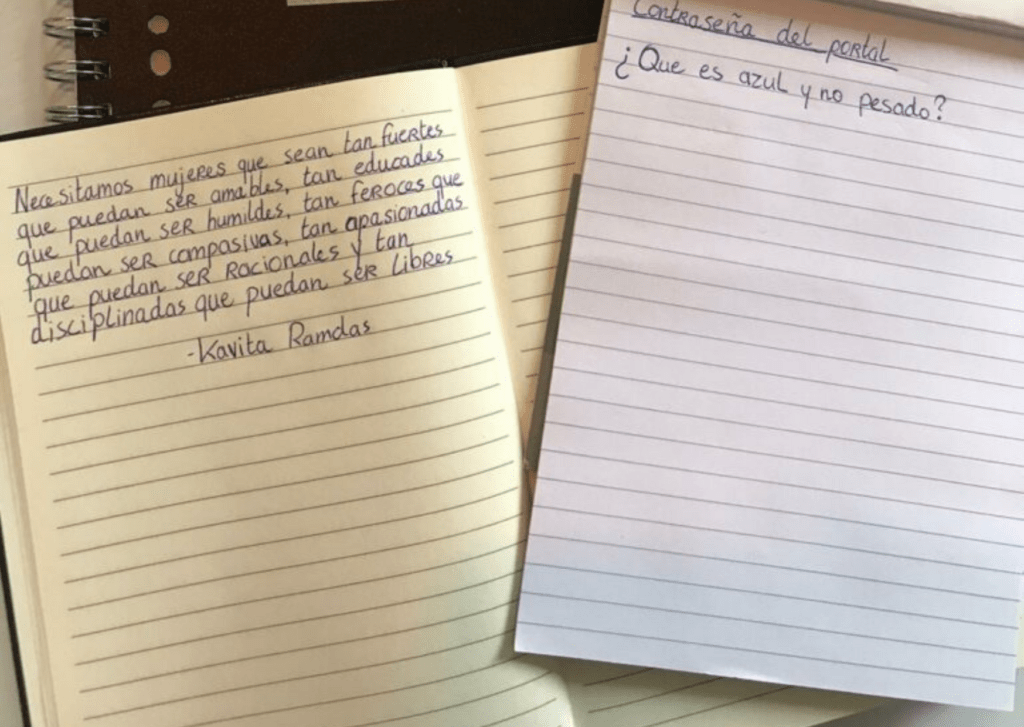 Necesitamos mujeres que sean tan fuertes
que puedan ser amables, tan educades
que puedan ser humildes, tan feroces que
puedan ser compasivas, tan apasionadas
que puedan ser racionales y tan
disciplinadas que puedan ser libres
-Kavita Ramdas
Contraseña del portal
¿Que es azul y no pesado?